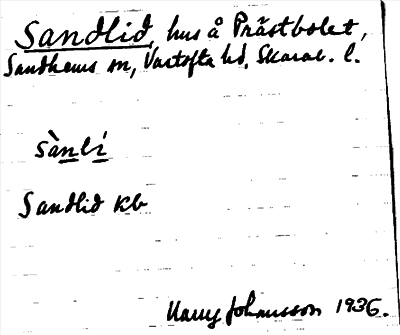 Sandlid, hus å Prästbolet,
Sandhems sn, Vartofta hd, Skarab. l.
sànlí
Sandlid kb
Harry Johansson 1936.